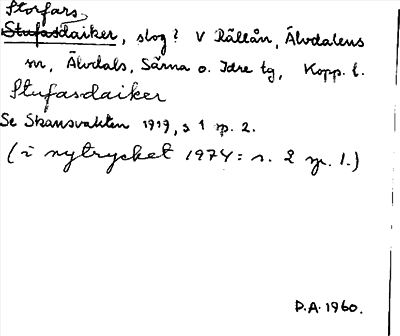 Storfars
Stufasdaiker, skog? V Rällån, Älvdalens
m, Älvdals, Särna o. Idre tg, Kopp. l.
Stufasdaiker
Se Skansvakten 1919, s 1 sp. 2.
(i nytrycket 1974: s. 2 sp. 1.)
D.A. 1960.